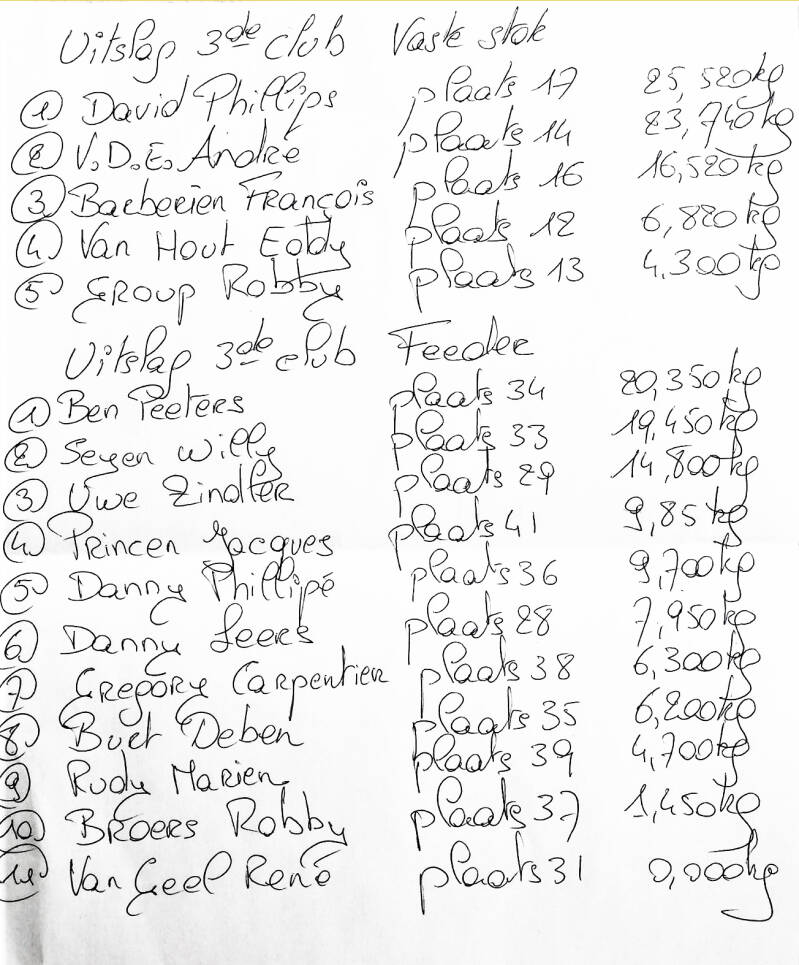 Uitslag 3de club Vaste stok
① David Phillips plaats 17 25,520kg
② V.D.E. André plaats 14 23,740kg
③ Barberien François plaats 16 16,520kg
④ Van Hout Eddy plaats 12 6,820kg
⑤ Group Robby plaats 13 4,300kg
Uitslag 3de club Feeder
① Ben Peeters plaats 34 20,350kg
② Segen Willy plaats 33 19,450kg
③ Uwe Zindler plaats 29 14,800kg
④ Princen Jacques plaats 41 9,85kg
⑤ Danny Phillipé plaats 36 9,700kg
⑥ Danny Leers plaats 28 7,950kg
⑦ Gregory Carpentier plaats 38 6,300kg
⑧ Buet Deben plaats 35 6,200kg
⑨ Rudy Marien plaats 39 4,700kg
⑩ Broers Robby plaats 37 1,450kg
⑪ Van Geel René plaats 31 0,000kg